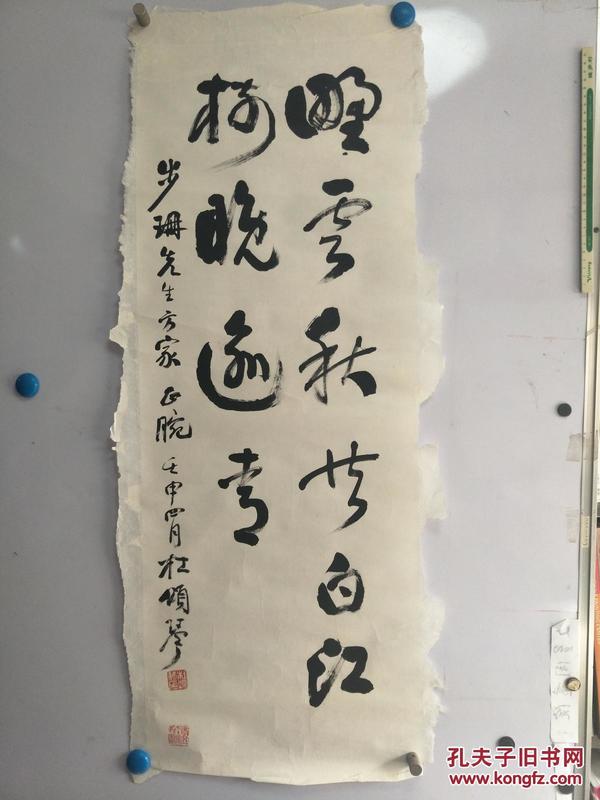 野云秋共白江
树晚逾青
步珊先生方家正腕壬申四月杜颂琴
孔夫子旧书网
www.kongfz.com